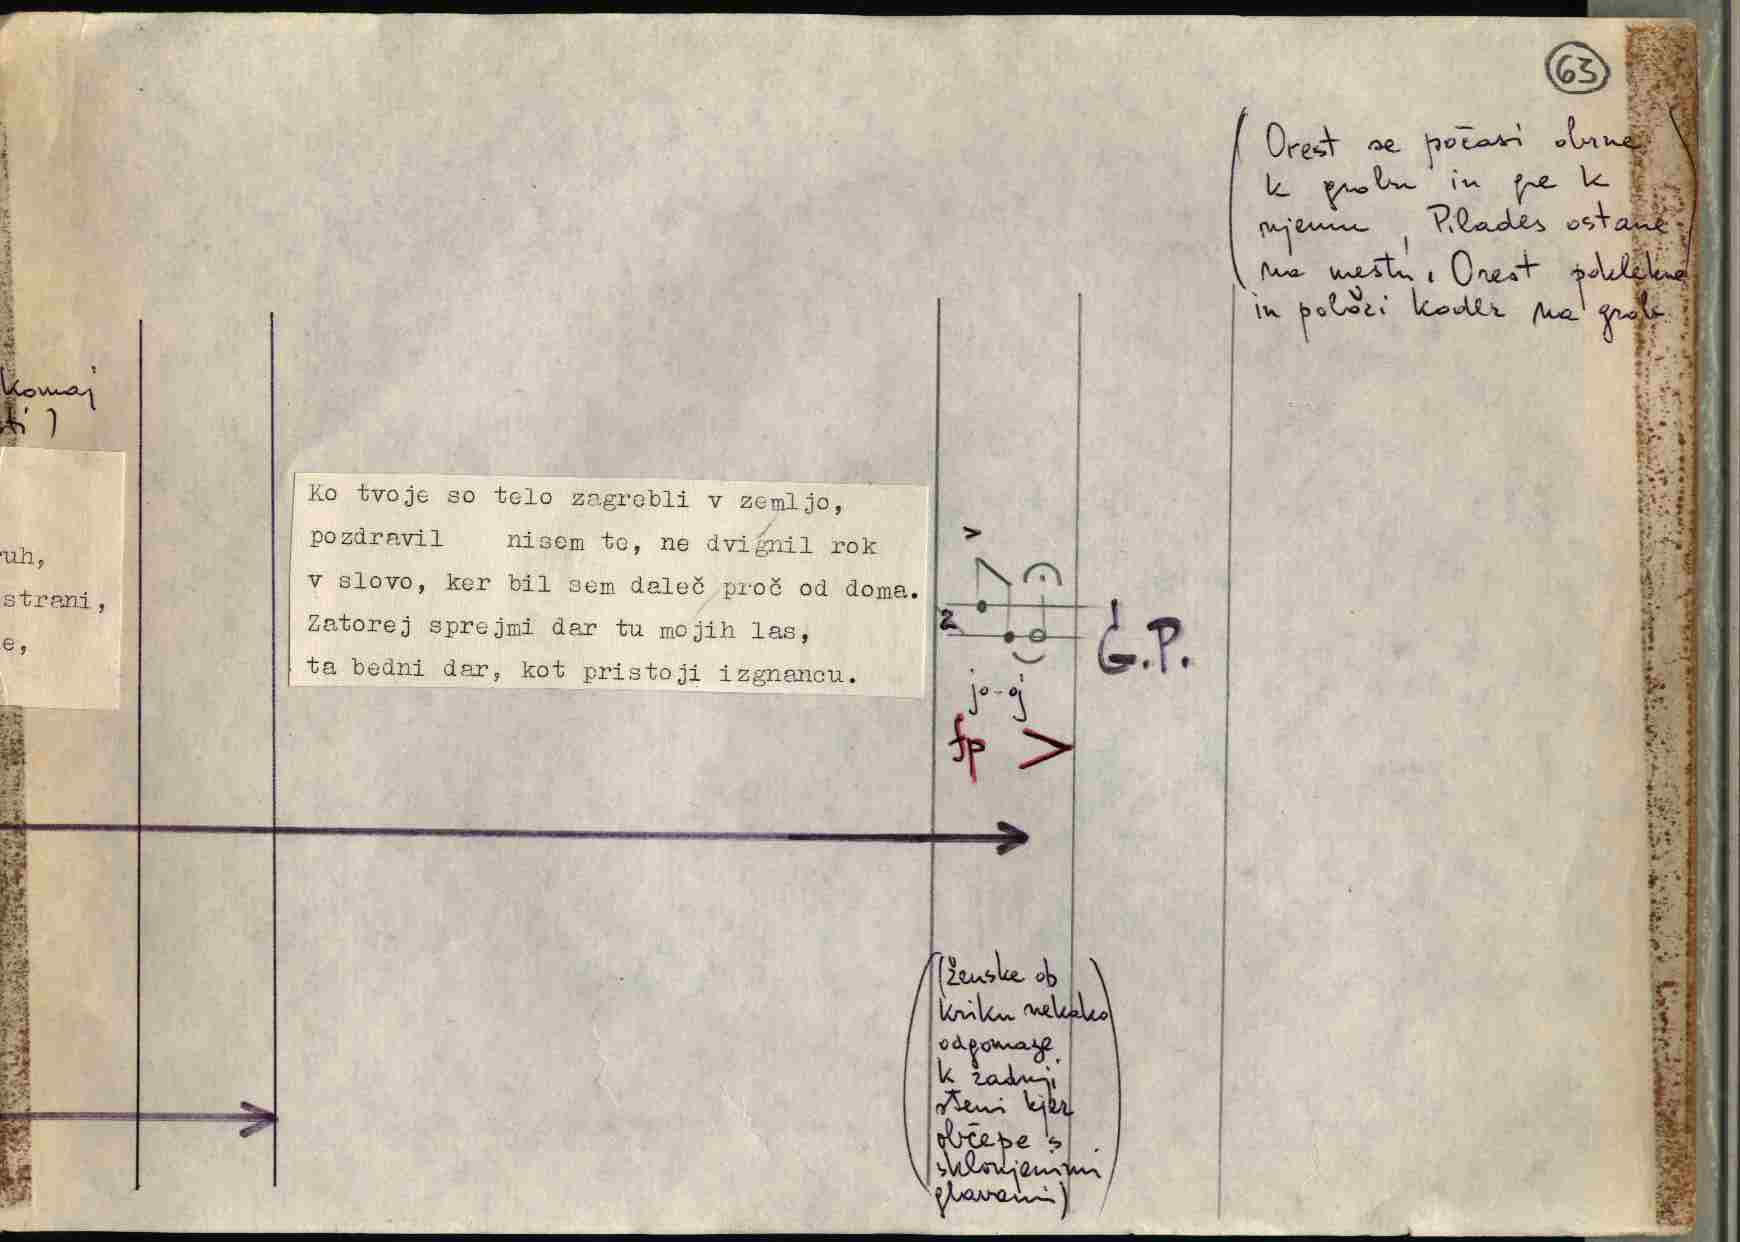 63
Orest se počasi obrne
k grobu in gre k
njemu, Pilades ostane
na mestu, Orest poklekne
in položi koder na grob
komaj
sti)
uh,
strani,
e,
Ko tvoje so telo zagrebli v zemljo,
pozdravil nisem te, ne dvignil rok
v slovo, ker bil sem daleč proč od doma.
Zatorej sprejmi dar tu mojih las,
ta bedni dar, kot pristoji izgnancu.
2
G.P.
jo-oj
fp >
(ženske ob
kriku nekako
odgomaze
k zadnji
steni kjer
obče​pe s
sklonjenimi
glavami)